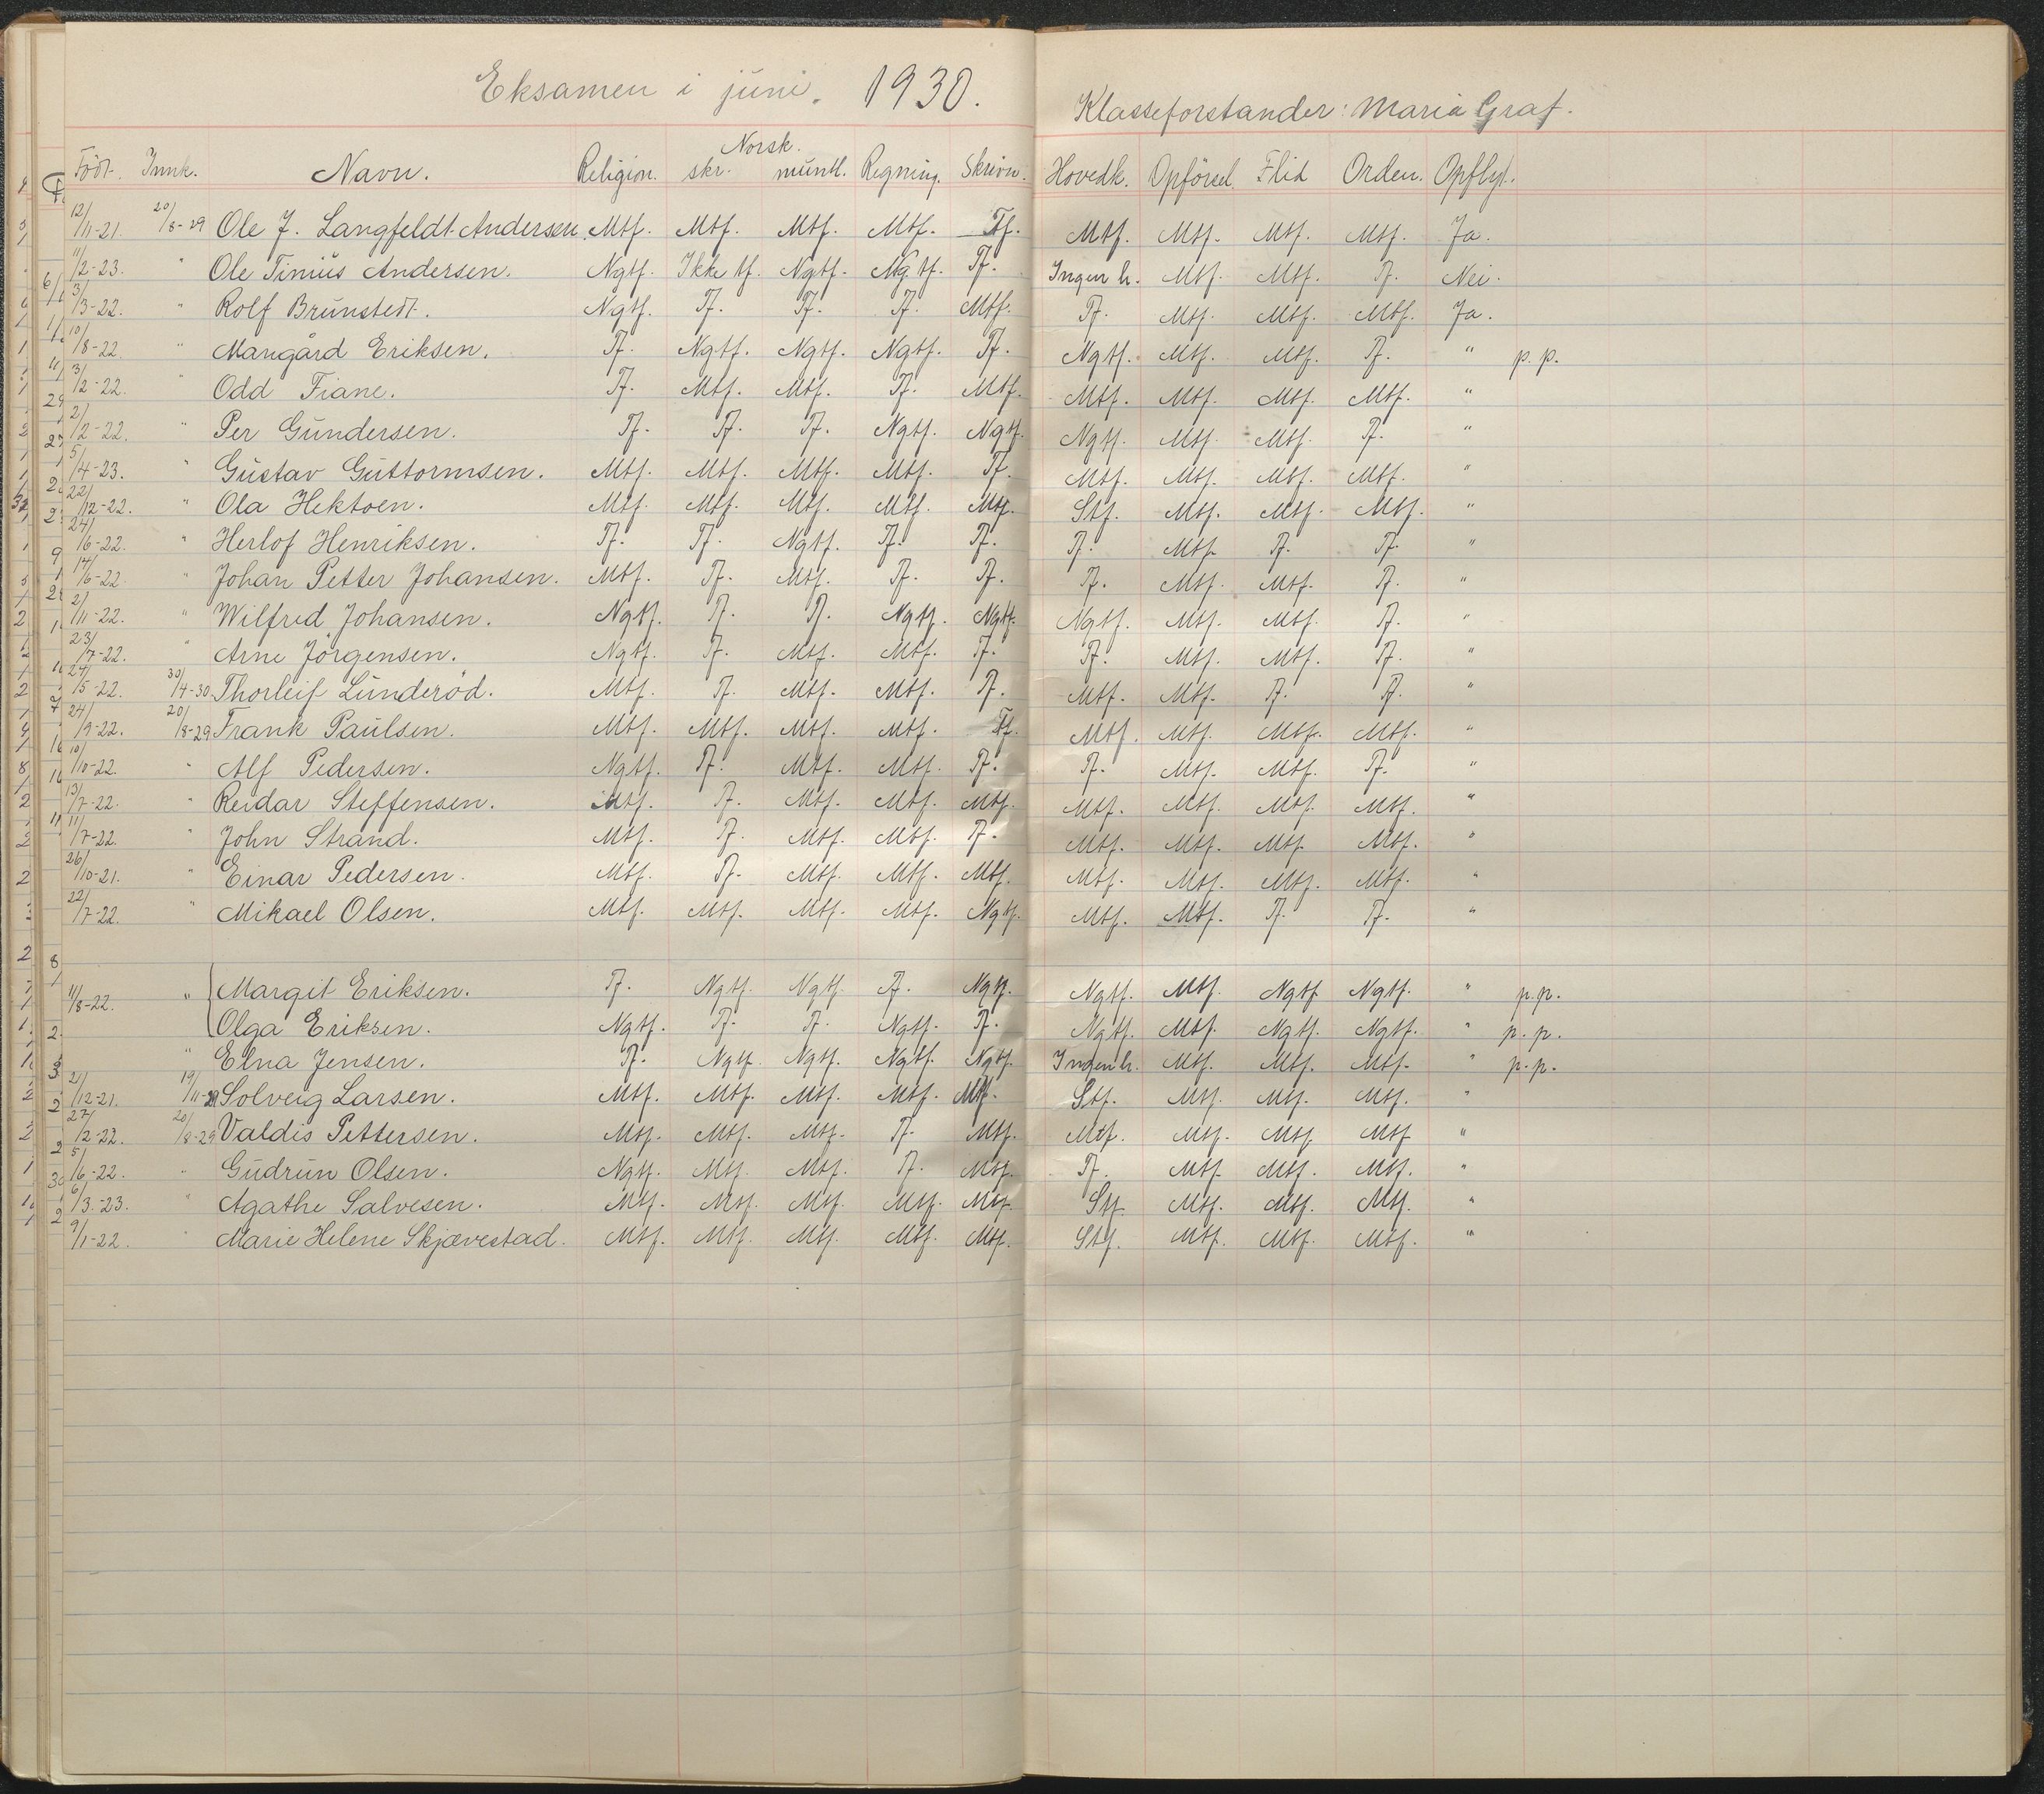 Eksamen i juni. 1930. Klasseforstander: Maria Graf.
Norsk.
Födt. Innk. Navn. Religion. skr. muntl. Regning. Skrivn. Hovedk. Opförsel. Flid Orden. Opflyt.
12/11-21. 20/8-29 Ole J. Langfeldt-Andersen. Mtf. Mtf. Mtf. Mtf. Tf. Mtf. Mtf. Mtf. Mtf. Ja.
11/2-23. " Ole Tinius Andersen. Ngtf. Ikke tf. Ngtf. Ngtf. Tf. Ingen h. Mtf. Mtf. Tf. Nei.
3/3-22. " Rolf Brunstedt. Ngtf. Tf. Tf. Tf. Mtf. Tf. Mtf. Mtf. Mtf. Ja.
10/8-22. " Mangård Eriksen. Tf. Ngtf. Ngtf. Ngtf. Tf. Ngtf. Mtf. Mtf. Tf. " p.p.
3/2-22. " Odd Fiane. Tf. Mtf. Mtf. Tf. Mtf. Mtf. Mtf. Mtf. Mtf. "
2/2-22. " Per Gundersen. Tf. Tf. Tf. Ngtf. Ngtf. Ngtf. Mtf. Mtf. Tf. "
5/4-23. " Gustav Guttormsen. Mtf. Mtf. Mtf. Mtf. Tf. Mtf. Mtf. Mtf. Mtf. "
22/12-22. " Ola Hektoen. Mtf. Mtf. Mtf. Mtf. Mtf. Stf. Mtf. Mtf. Mtf. "
24/6-22. " Herlof Henriksen. Tf. Tf. Ngtf. Tf. Tf. Tf. Mtf. Tf. Tf. "
17/6-22. " Johan Petter Johansen. Mtf. Tf. Mtf. Tf. Tf. Tf. Mtf. Mtf. Tf. "
2/11-22. " Wilfred Johansen. Ngtf. Tf. Tf. Ngtf. Ngtf. Ngtf. Mtf. Mtf. Tf. "
23/7-22. " Arne Jörgensen. Ngtf. Tf. Mtf. Mtf. Tf. Tf. Mtf. Mtf. Tf. "
27/5-22. 30/4-30. Thorleif Lunderöd. Mtf. Tf. Mtf. Mtf. Tf. Mtf. Mtf. Tf. Tf. "
24/9-22. 20/8-29 Frank Paulsen. Mtf. Mtf. Mtf. Mtf. Tf. Mtf. Mtf. Mtf. Mtf. "
10/10-22. " Alf Pedersen. Ngtf. Tf. Mtf. Mtf. Tf. Tf. Mtf. Mtf. Tf. "
13/7-22. " Reidar Steffensen. Mtf. Tf. Mtf. Mtf. Mtf. Mtf. Mtf. Mtf. Mtf. "
11/7-22. " John Strand. Mtf. Tf. Mtf. Mtf. Tf. Mtf. Mtf. Mtf. Mtf. "
26/10-21. " Einar Pedersen. Mtf. Tf. Mtf. Mtf. Mtf. Mtf. Mtf. Mtf. Mtf. "
22/7-22. " Mikael Olsen. Mtf. Mtf. Mtf. Mtf. Ngtf. Mtf. Mtf. Tf. Tf. "
11/8-22. " Margit Eriksen. Tf. Ngtf. Ngtf. Tf. Ngtf. Ngtf. Mtf. Ngtf Ngtf. " p.p.
Olga Eriksen. Ngtf. Tf. Tf. Ngtf. Tf. Ngtf. Mtf. Ngtf. Ngtf. " p.p.
" Elna Jensen. Tf. Ngtf. Ngtf. Ngtf. Ngtf. Ingen h. Mtf. Mtf. Mtf. " p.p.
21/12-21. 19/11-29 Solveig Larsen. Mtf. Mtf. Mtf. Mtf. Mtf. Stf. Mtf. Mtf. Mtf. "
27/2-22. 20/8-29 Valdis Pettersen. Mtf. Mtf. Mtf. Tf. Mtf. Mtf. Mtf. Mtf. Mtf "
5/6-22. " Gudrun Olsen. Ngtf. Mtf. Mtf. Tf. Mtf. Tf. Mtf. Mtf. Mtf. "
6/3-23. " Agathe Salvesen. Mtf. Mtf. Mtf. Mtf. Mtf. Stf. Mtf. Mtf. Mtf. "
9/1-22. " Marie Helene Skjævestad. Mtf. Mtf. Mtf. Mtf. Mtf. Stf. Mtf. Mtf. Mtf. "